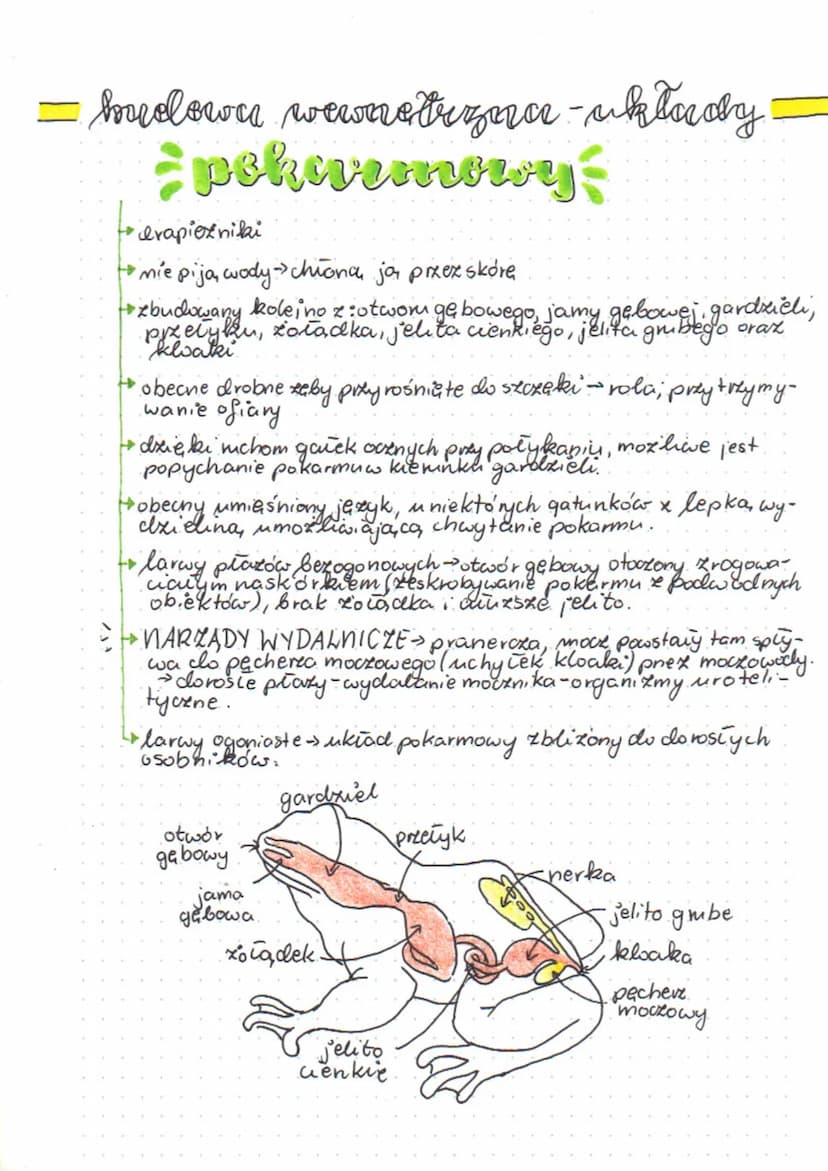 budowa wewnętrzna - układy
pokarmowy
→ drapieżniki
→ nie piją wody → chłoną ją przez skórę
→ zbudowany kolejno z: otworu gębowego, jamy gębowej, gardzieli,
przełyku, żołądka, jelita cienkiego, jelita grubego oraz
kloaki
→ obecne drobne zęby przyrośnięte do szczęki → rola: przytrzymy-
wanie ofiary
→ dzięki ruchom gałek ocznych przy połykaniu, możliwe jest
popychanie pokarmu w kierunku gardzieli.
→ obecny umięśniony język, u niektórych gatunków z lepką wy-
dzieliną umożliwiającą chwytanie pokarmu.
→ larwy płazów bezogonowych → otwór gębowy otoczony zrogowa-
ciałym naskórkiem (zeskrobywanie pokarmu z podwodnych
obiektów), brak żołądka i dłuższe jelito.
→ NARZĄDY WYDALNICZE → pranercza, mocz powstały tam spły-
wa do pęcherza moczowego (uchyłek kloaki) przez moczowody.
→ dorosłe płazy - wydalanie mocznika - organizmy ureoteli-
tyczne.
→ larwy ogoniaste → układ pokarmowy zbliżony do dorosłych
osobników.
gardziel
otwór
gębowy
przełyk
nerka
jama
gębowa
jelito grube
żołądek
kloaka
pęcherz
moczowy
jelito
cienkie